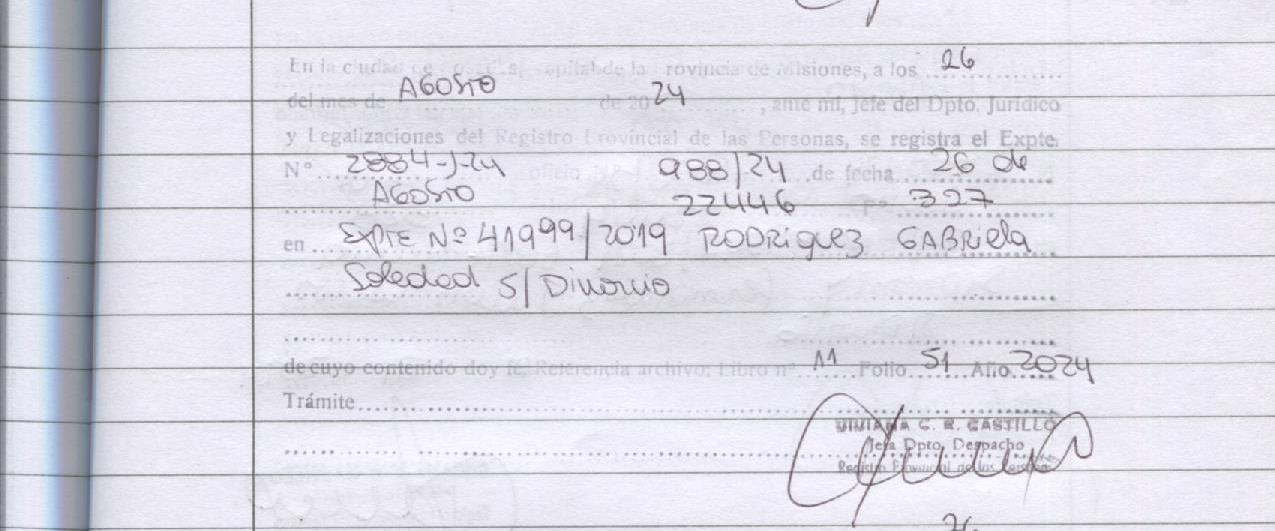 En la ciudad de Posadas, capital de la Provincia de Misiones, a los 26
del mes de AGOSTO de 2024, ante mí, Jefe del Dpto. Jurídico
y Legalizaciones del Registro Provincial de las Personas, se registra el Expte.
N° 2884-J-24 oficio 988/24 de fecha 26 de
AGOSTO 22446 F° 327
en EXPTE Nº 41999/2019 RODRiguez GABRiela
Soledad S/ Divorcio
de cuyo contenido doy fe. Referencia archivo: Libro nº 11 Folio 51 Año 2024
Trámite
VIVIANA C. R. CASTILLO
Jefa Dpto. Despacho
Registro Provincial de las Personas
26